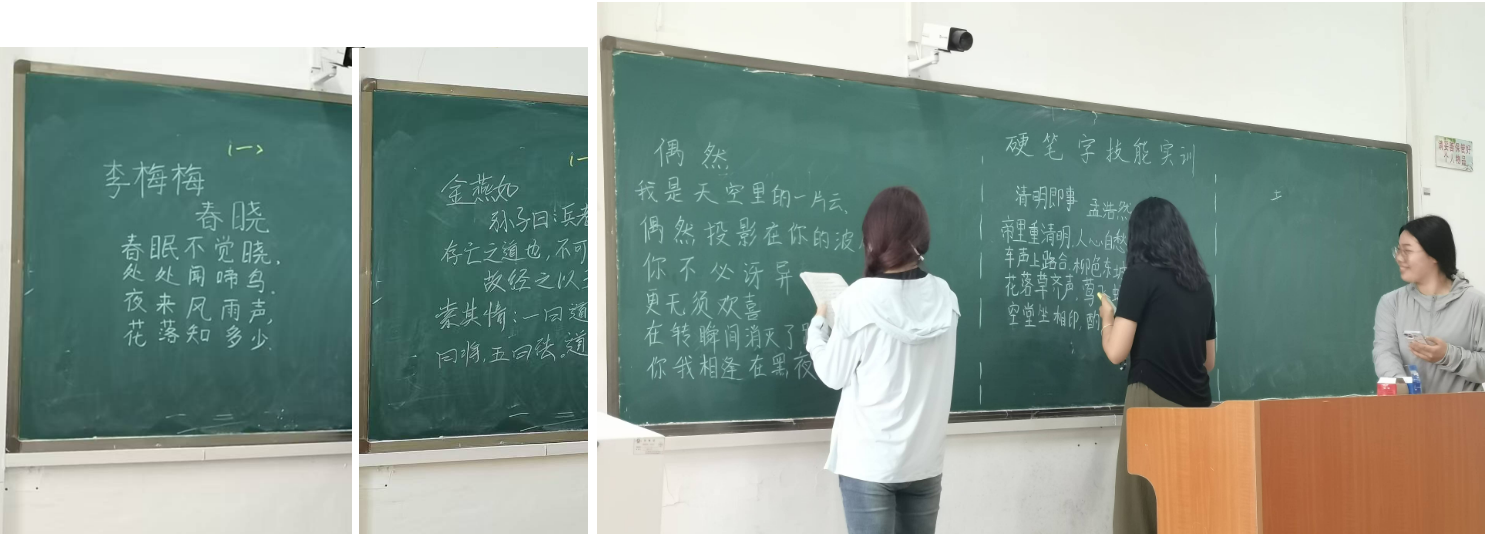 (一)
李梅梅
春晓
春眠不觉晓,
处处闻啼鸟,
夜来风雨声,
花落知多少.
(一
金燕如
孙子曰:兵者
存亡之道也,不可
故经之以五
索其情:一曰道
曰将,五曰法。道
偶然
我是天空里的一片云、
偶然投影在你的波
你不必讶异
更无须欢喜
在转瞬间消灭了
你我相逢在黑夜
硬笔字技能实训
清明即事 孟浩然
帝里重清明,人心自愁
车声上路合,柳色东城
花落草齐声,莺
空堂坐相印,酌
个人物品